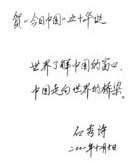 贺《今日中国》五十华诞
世界了解中国的窗口,
中国走向世界的桥梁。
石秀诗
二〇〇二年十月十日